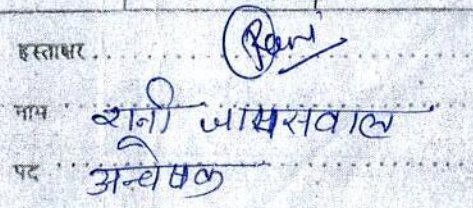 हस्ताक्षर Rani
नाम रानी जायसवाल
पद अन्वेषक